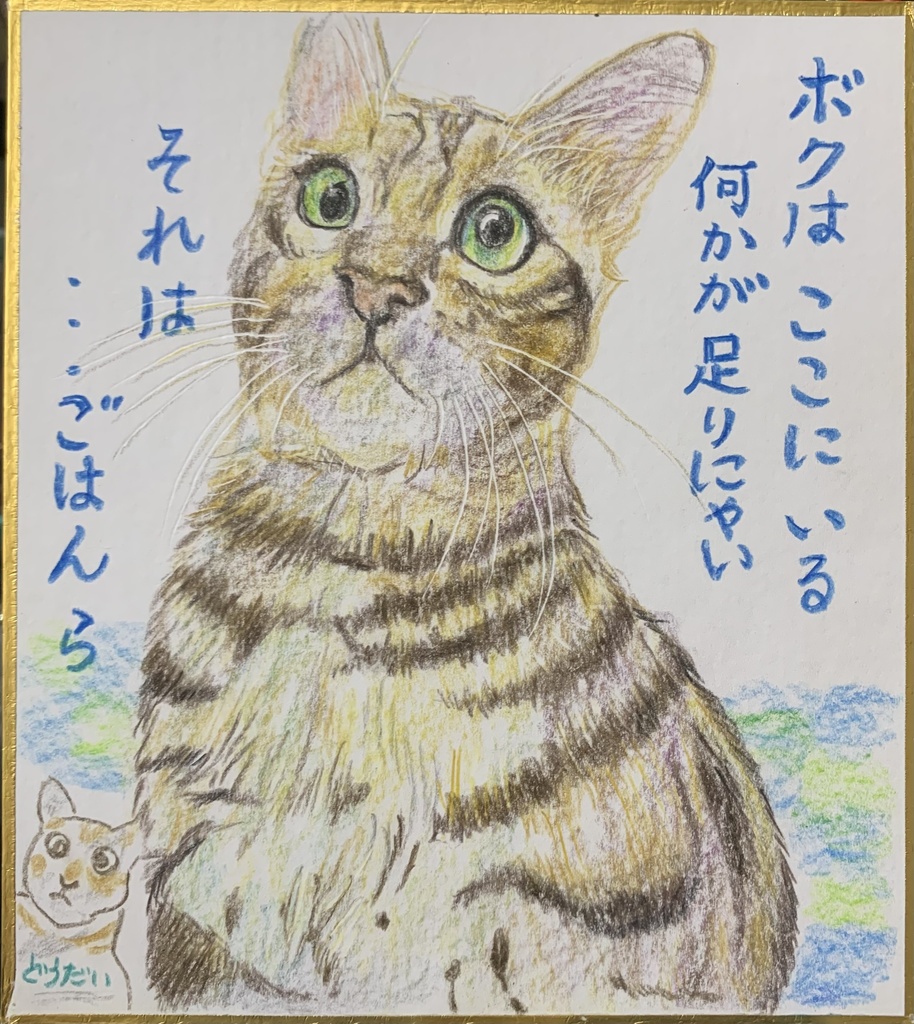 ボクは ここに いる
何かが足りにゃい
それは
‥‥ごはんら
とらだい